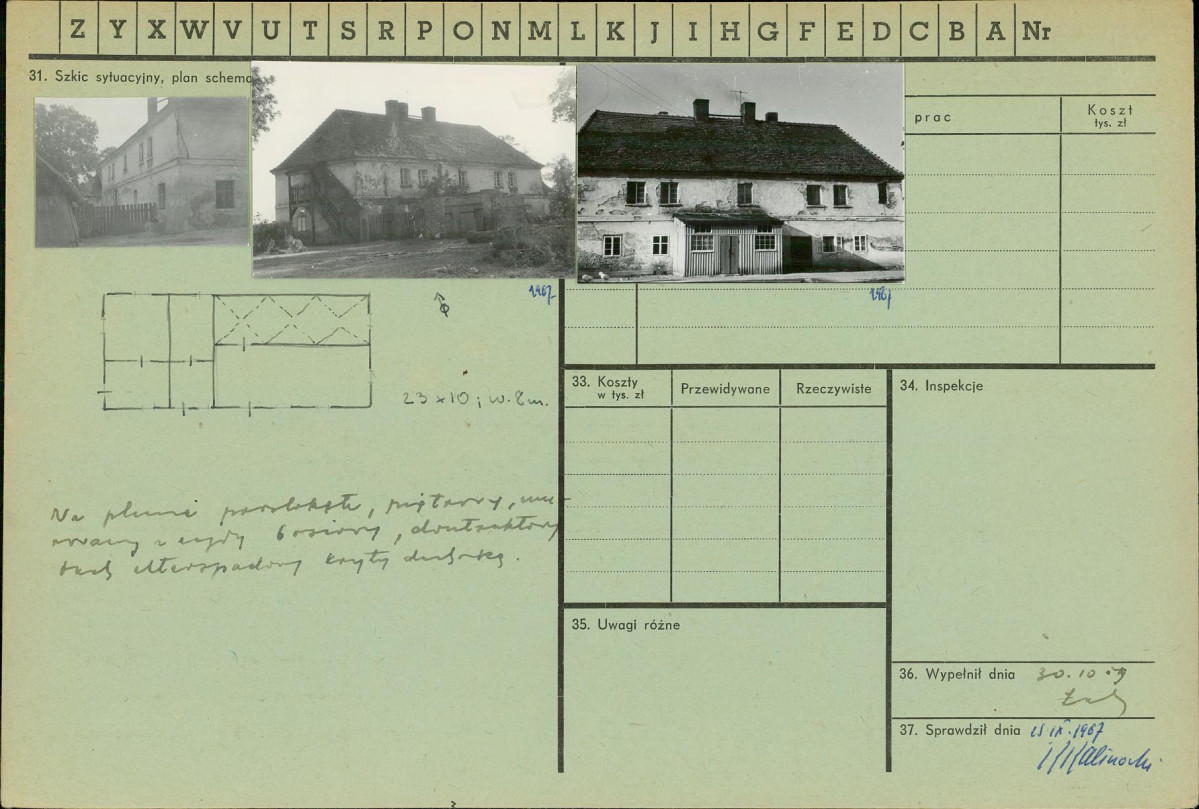 Z Y X W V U T S R P O N M L K J I H G F E D C B A Nr
31. Szkic sytuacyjny, plan schema
prac
Koszt
tys. zł
1967
1967
23 x 10; w. 8 m.
Na planie prostokąta, piętrowy, mu-
rowany z cegły 6 osiowy, dwutraktowy
dach czterospadowy kryty dachówką.
33. Koszty
w tys. zł
Przewidywane
Rzeczywiste
34. Inspekcje
35. Uwagi różne
36. Wypełnił dnia 30.10.59
37. Sprawdził dnia 15 IX. 1967